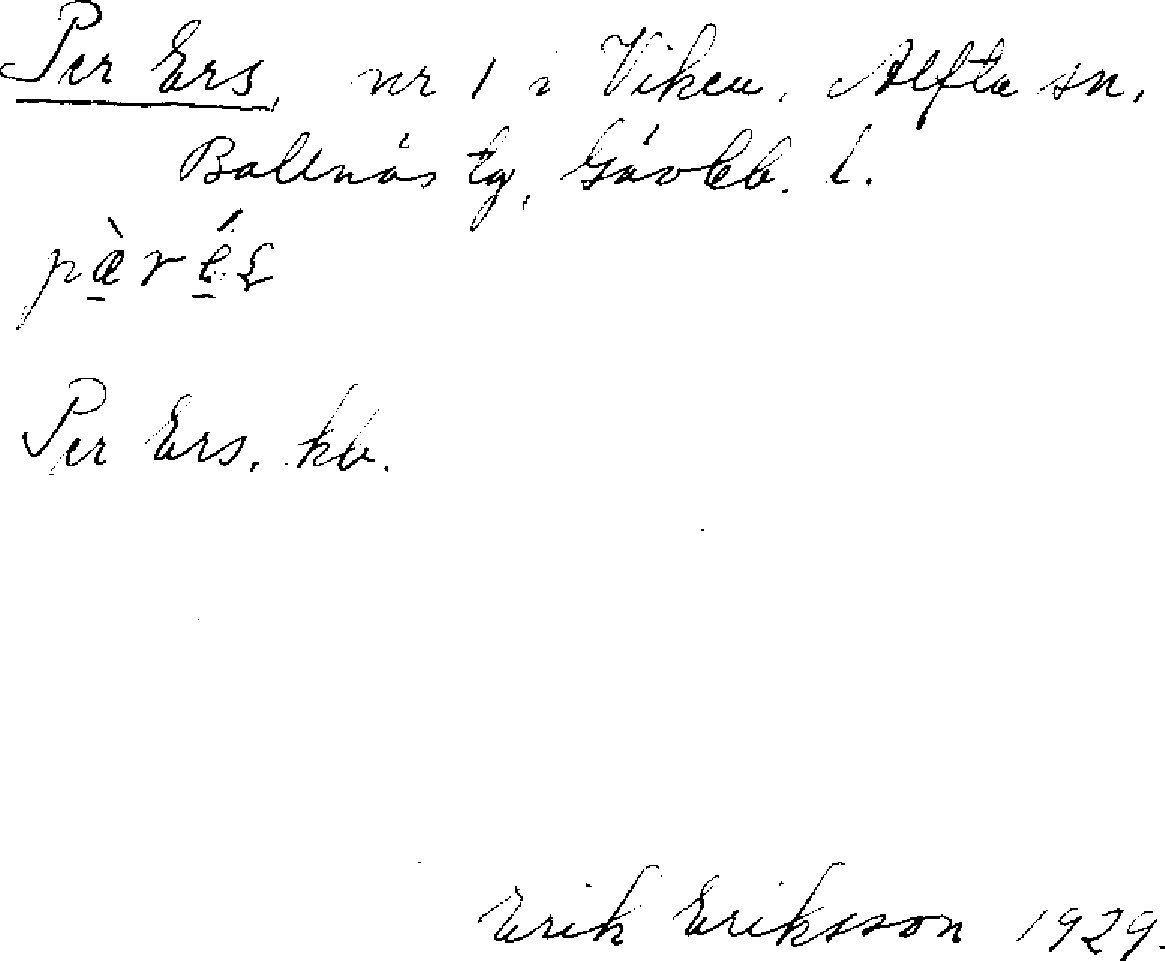 Per Ers, nr 1 i Viken, Alfta sn,
Bollnäs tg, Gävleb. l.
pæ̀rés
Per Ers, kb.
Erik Eriksson 1929.